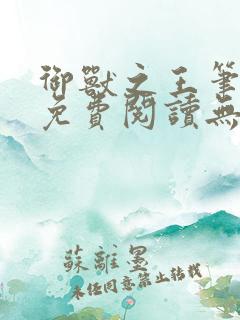 御獸之王筆
免費閱讀無
蘇離墨
未任同意禁止轉載